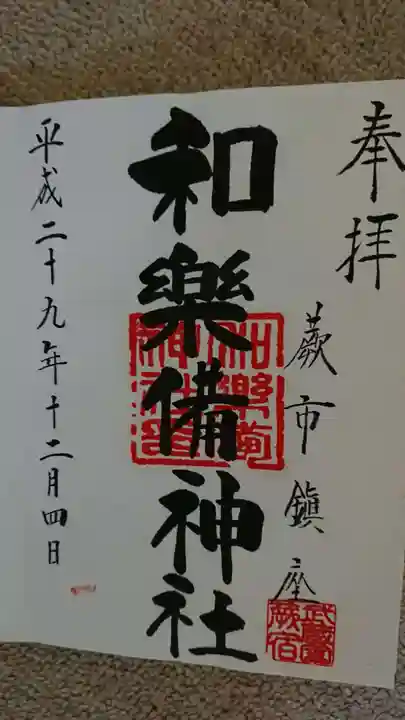 奉拝
蕨市鎮座
和樂備神社
平成二十九年十二月四日
武蔵
蕨宿